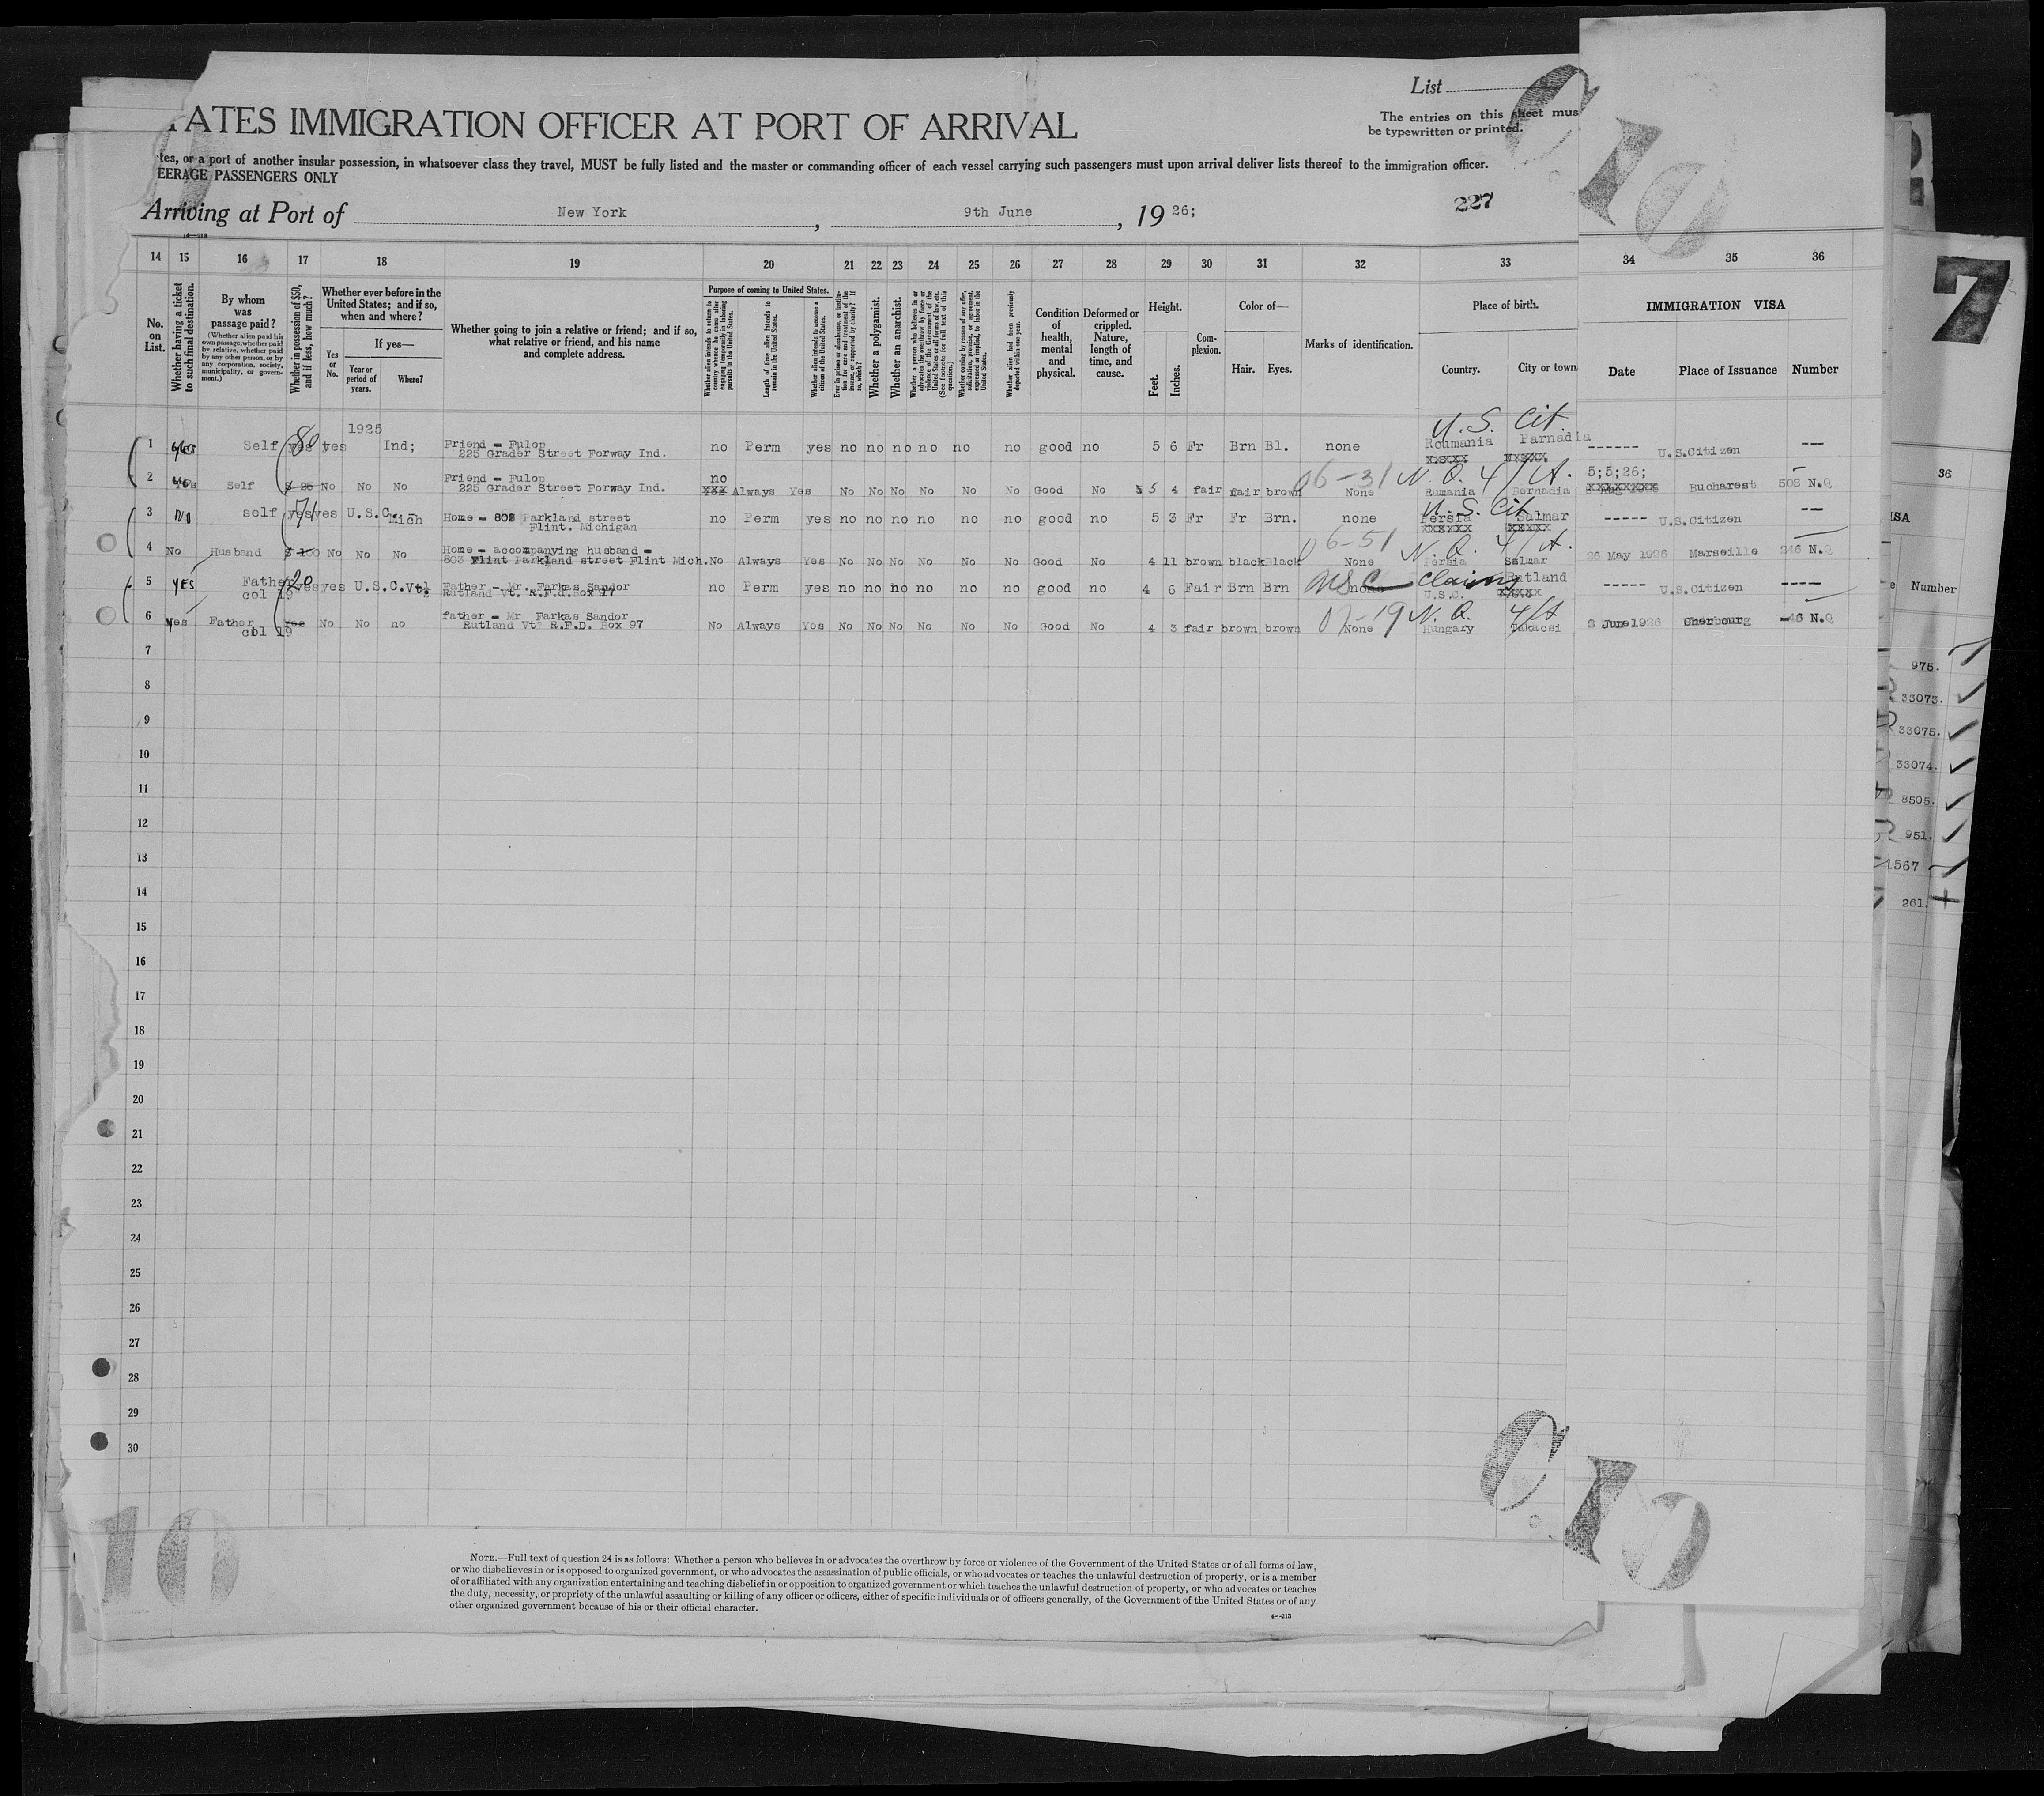 List
The entries on this sheet mus
be typewritten or printed.
ATES IMMIGRATION OFFICER AT PORT OF ARRIVAL
tes, or a port of another insular possession, in whatsoever class they travel, MUST be fully listed and the master or commanding officer of each vessel carrying such passengers must upon arrival deliver lists thereof to the immigration officer.
EERAGE PASSENGERS ONLY
Arriving at Port of New York, 9th June, 1926;
227
14 15 16 17 18 19 20 21 22 23 24 25 26 27 28 29 30 31 32 33 34 35 36
No. on List.
Whether having a ticket to such final destination.
By whom was passage paid?
(Whether alien paid his own passage, whether paid by relative, whether paid by any other person, or by any corporation, society, municipality, or government.)
Whether in possession of $50, and if less, how much?
Whether ever before in the United States; and if so, when and where?
Yes or No.
If yes—
Year or period of years.
Where?
Whether going to join a relative or friend; and if so, what relative or friend, and his name and complete address.
Purpose of coming to United States.
Whether alien intends to return to country whence he came after engaging temporarily in laboring pursuits in the United States.
Length of time alien intends to remain in the United States.
Whether alien intends to become a citizen of the United States.
Whether a polygamist.
Whether an anarchist.
Whether alien had been previously deported within one year.
Condition of health, mental and physical.
Deformed or crippled. Nature, length of time, and cause.
Height.
Feet.
Inches.
Complexion.
Color of—
Hair.
Eyes.
Marks of identification.
Place of birth.
Country.
City or town
IMMIGRATION VISA
Date
Place of Issuance
Number
1 yes Self 80 yes 1925 Ind; Friend - Fulop 225 Grader Street Forway Ind. no Perm yes no no no no no no good no 5 6 Fr Brn Bl. none U.S. Cit. Roumania Parnadia ------ U.S.Citizen ---
2 Self $ 25 No No No Friend - Fulop 225 Grader Street Forway Ind. no Always Yes No No No No No No Good No 5 4 fair fair brown 06-31 None N.Q. 4/A. Rumania Bernadia 5;5;26; Bucharest 508 N.Q
3 No self 71 yes yes U.S.C. Mich Home - 803 Parkland street Flint. Michigan no Perm yes no no no no no no good no 5 3 Fr Fr Brn. none U.S. Cit Persia Salmar ----- U.S.Citizen ---
4 No Husband $ 100 No No No Home - accompanying husband - 803 Flint Parkland street Flint Mich. No Always Yes No No No No No No Good No 4 11 brown black Black 06-51 None N.Q. 4/A. Persia Salmar 26 May 1926 Marseille 246 N.Q
5 YES Father col 19 20 yes yes U.S.C. Vt. Father - Mr. Farkas Sandor Rutland Vt. R.F.d. Box 97 no Perm yes no no no no no no good no 4 6 Fair Brn Brn USC none claims U.S.C. Rutland ----- U.S.Citizen ----
6 Yes Father col 19 Yes No No no father - Mr Farkas Sandor Rutland Vt R.F.D. Box 97 No Always Yes No No No No No No Good No 4 3 fair brown brown 07-19 None N.Q. 4/A Hungary Takacsi 2 June 1926 Cherbourg 46 N.Q
7
8
9
10
11
12
13
14
15
16
17
18
19
20
21
22
23
24
25
26
27
28
29
30
7
36
ISA
Number
975.
33073.
33075.
33074.
8505.
951.
1567
261.
C10
10
C10
NOTE.—Full text of question 24 is as follows: Whether a person who believes in or advocates the overthrow by force or violence of the Government of the United States or of all forms of law,
or who disbelieves in or is opposed to organized government, or who advocates the assassination of public officials, or who advocates or teaches the unlawful destruction of property, or is a member
of or affiliated with any organization entertaining and teaching disbelief in or opposition to organized government or which teaches the unlawful destruction of property, or who advocates or teaches
the duty, necessity, or propriety of the unlawful assaulting or killing of any officer or officers, either of specific individuals or of officers generally, of the Government of the United States or of any
other organized government because of his or their official character.